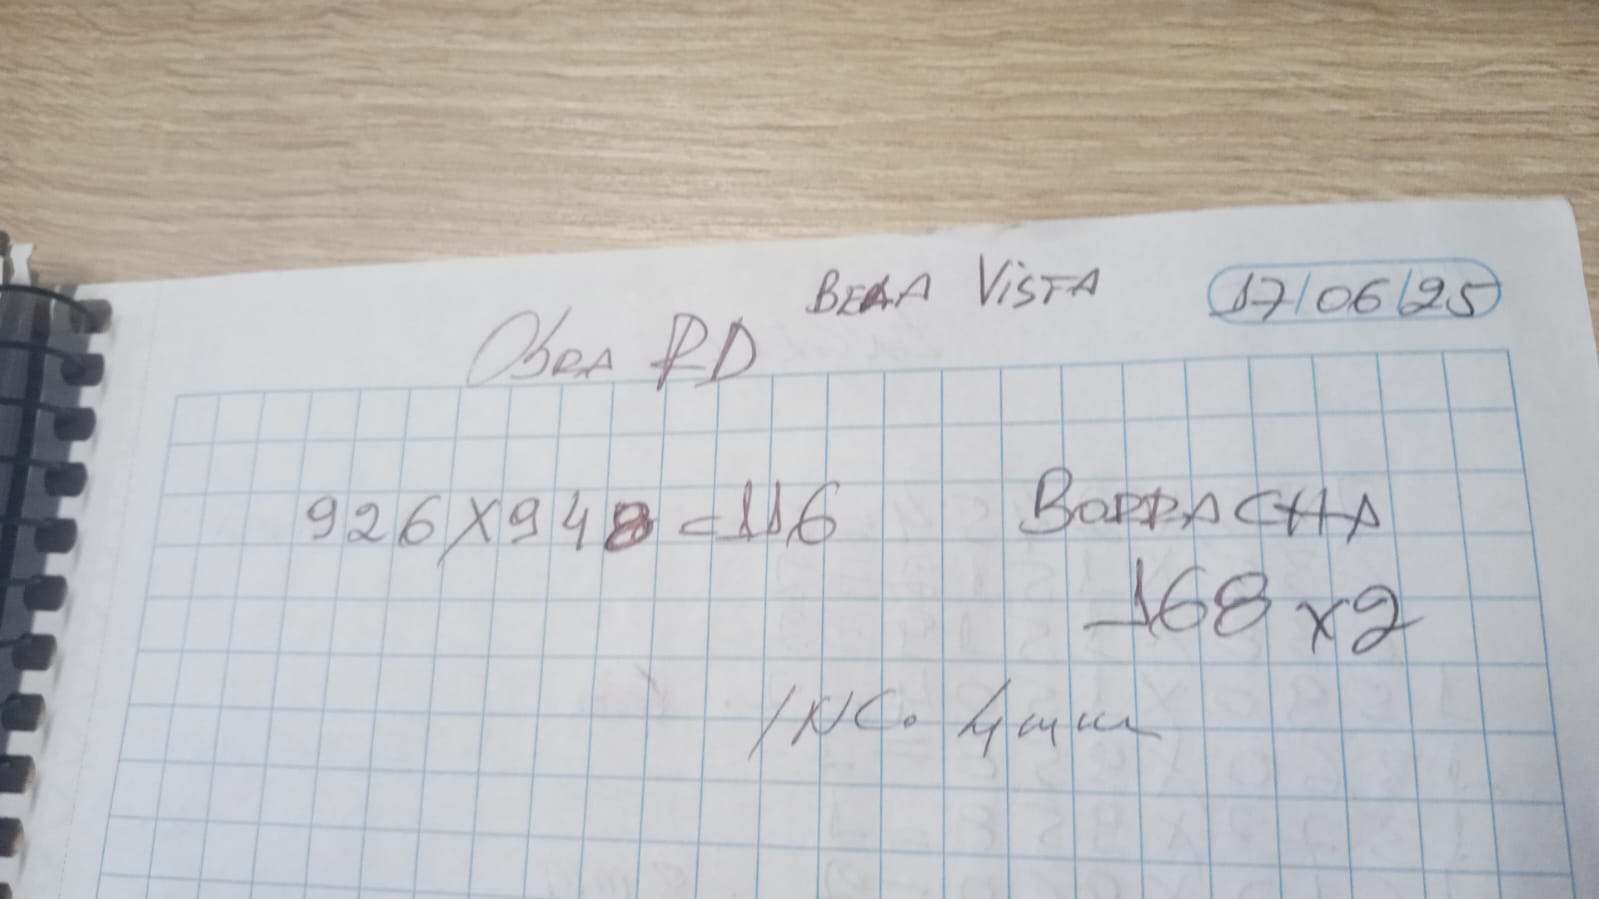 BELA VISTA 17/06/25
OBRA RD
926X948 = 116 BORRACHA
168 x2
INC. 4mm